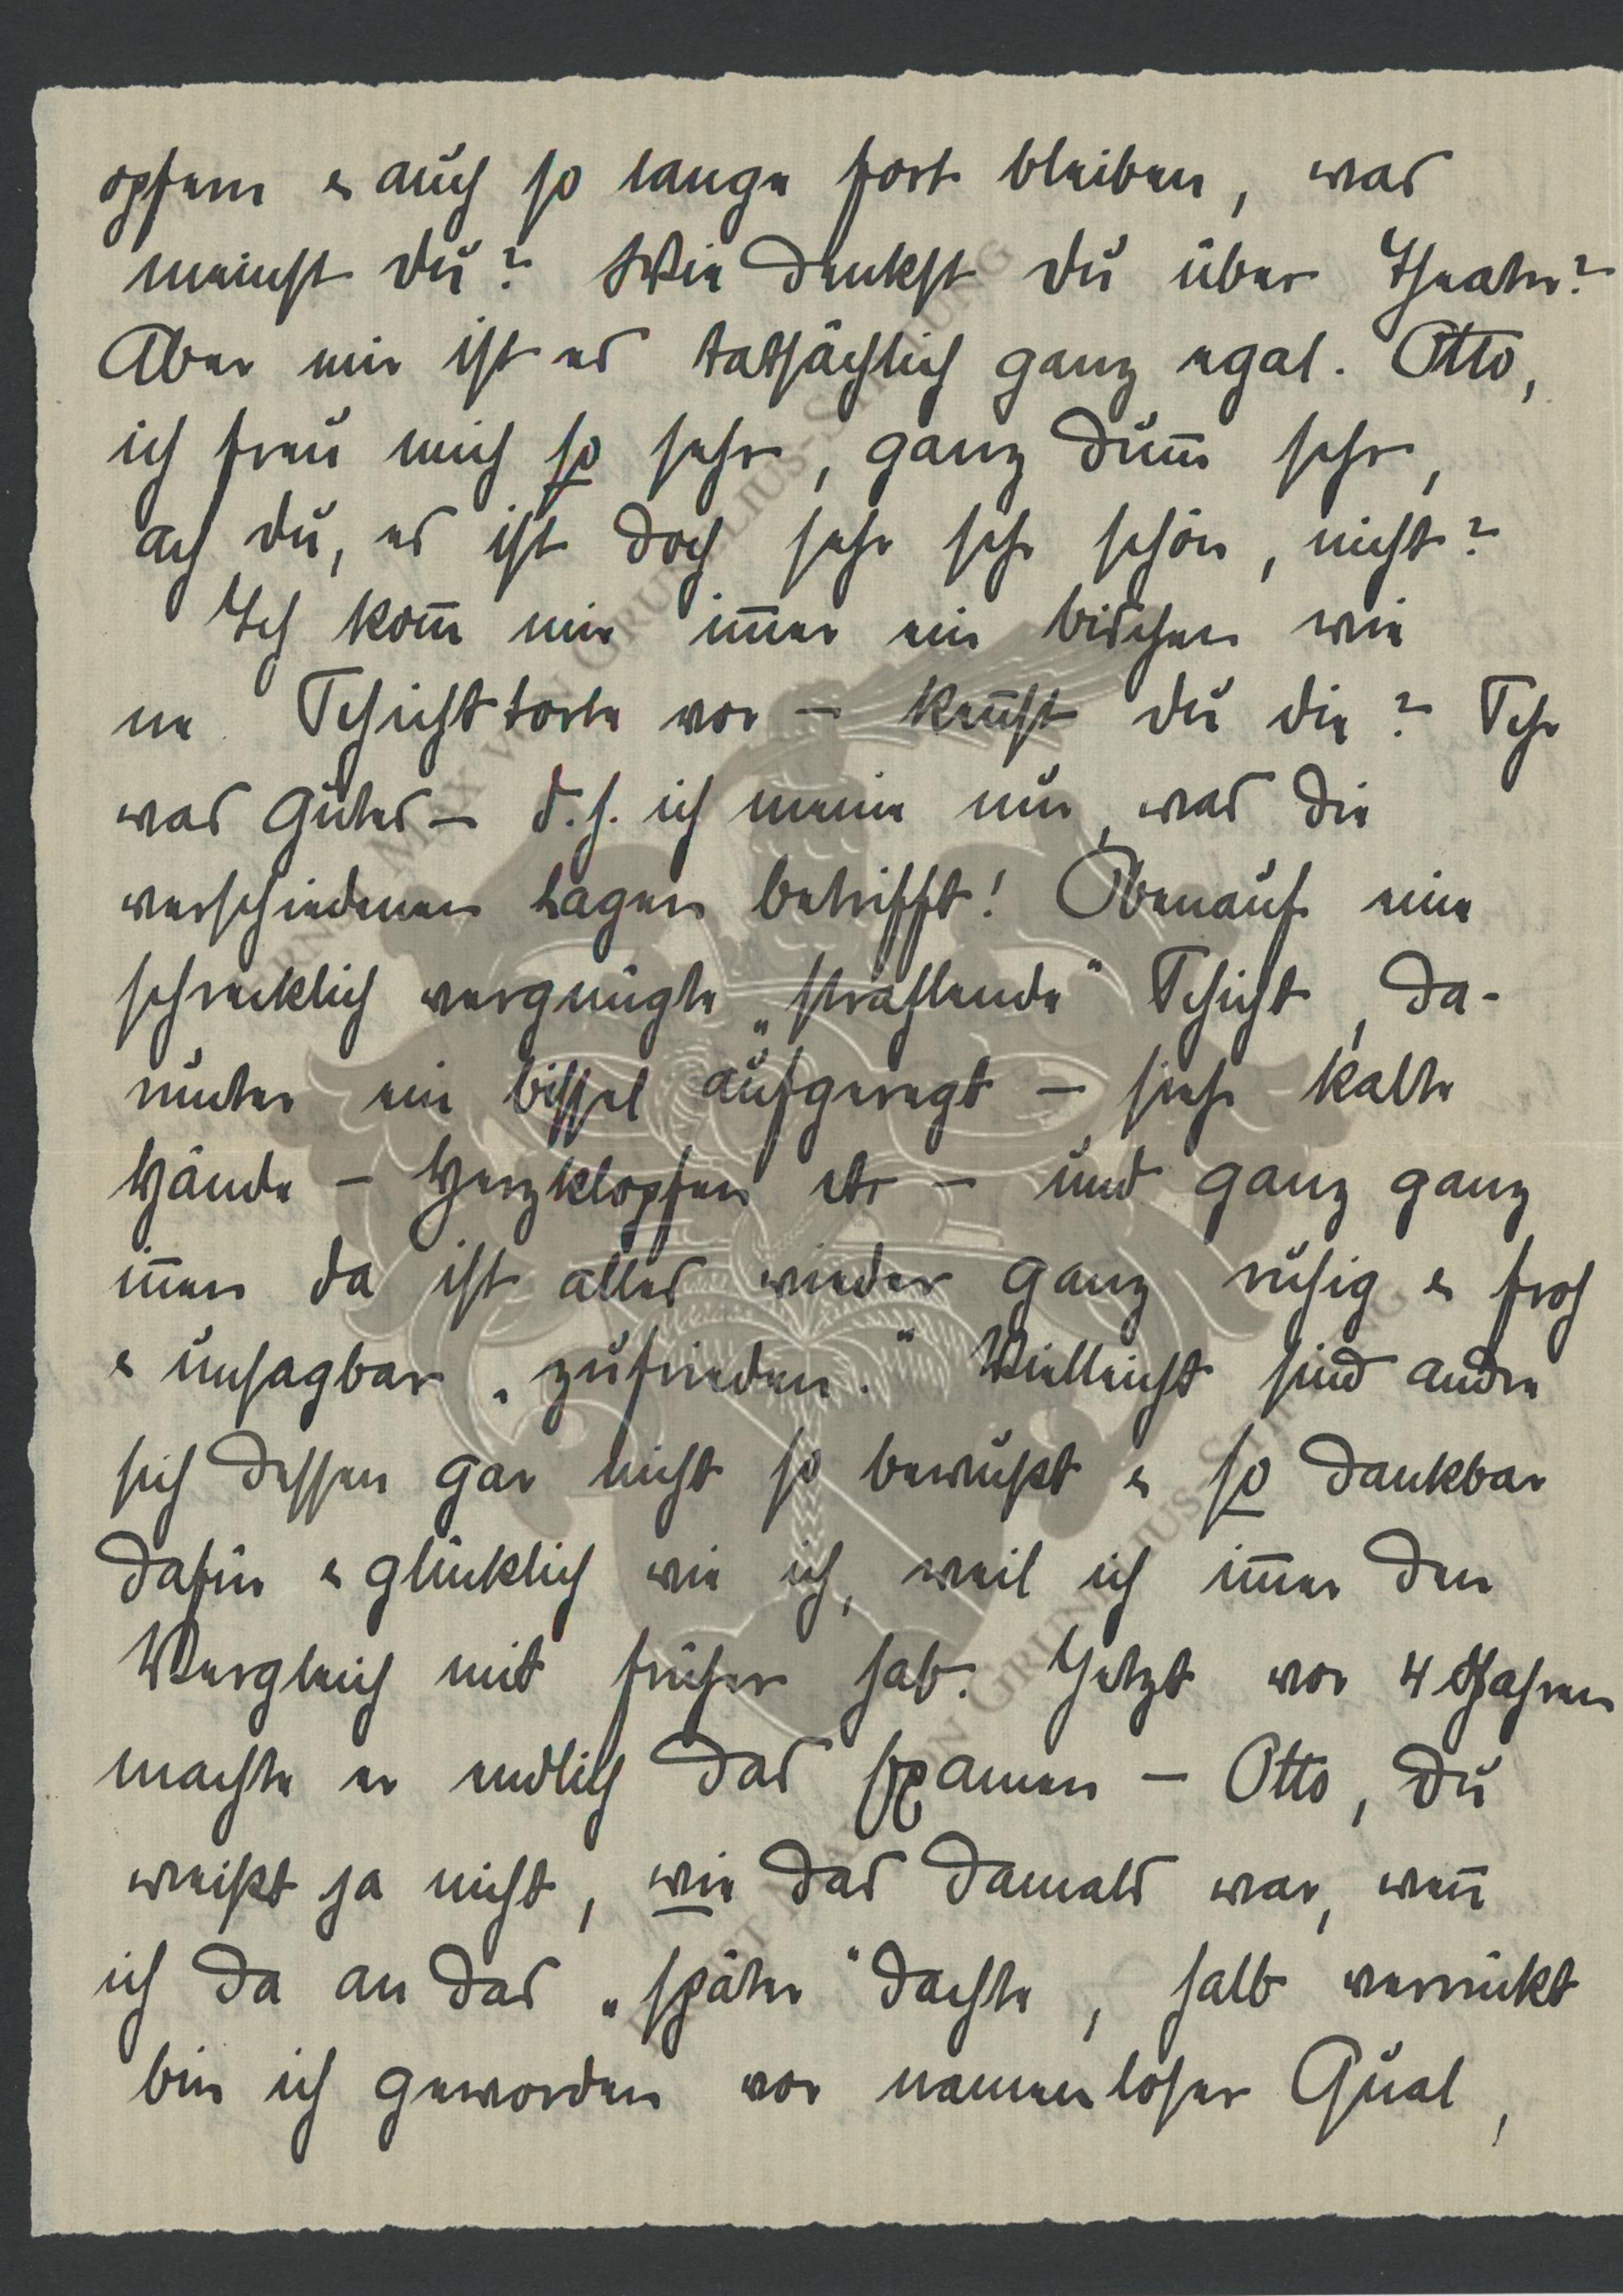 opfern & auch so lange fort bleiben, was
meinst du? Wie denkst du über Theater?
Aber mir ist es tatsächlich ganz egal. Otto,
ich freu mich so sehr, ganz dum̅ sehr,
ach du, es ist doch sehr sehr schön, nicht?
Ich kom̅ mir im̅er ein bischen wie
ne Schichttorte vor – ken̅st du die? Sehr
was Gutes – d. h. ich meine nur, was die
verschiedenen Lagen betrifft! Obenauf eine
schrecklich vergnügte „strahlende" Schicht, da-
runter ein bissel aufgeregt – siehe kalte
Hände – Herzklopfen etc – und ganz ganz
in̅en da ist alles wieder ganz ruhig & froh
& unsagbar „zufrieden." Vielleicht sind andre
sich dessen gar nicht so bewußt & so dankbar
dafür & glücklich wie ich, weil ich im̅er den
Vergleich mit früher hab. Jetzt vor 4 Jahren
machte er endlich das Examen – Otto, du
weißt ja nicht, wie das damals war, wen̅
ich da an das „später" dachte, halb verrückt
bin ich geworden vor namenloser Qual,
ERNST MAX VON GRUNELIUS-STIFTUNG
ERNST MAX VON GRUNELIUS-STIFTUNG